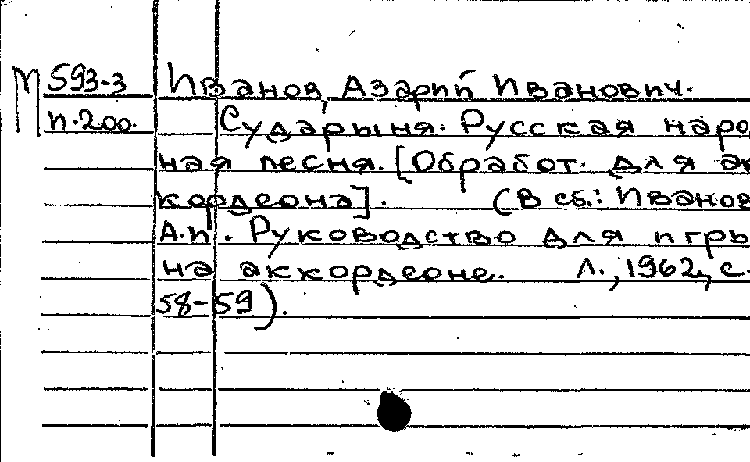 М 593-3 Иванов, Азарий Иванович.
п.200. Сударыня. Русская наро
ная песня. [Обработ. для ак
кордеона]. (В сб.: Иванов
А.И. Руководство для игры
на аккордеоне. Л., 1962, с.
58-59).